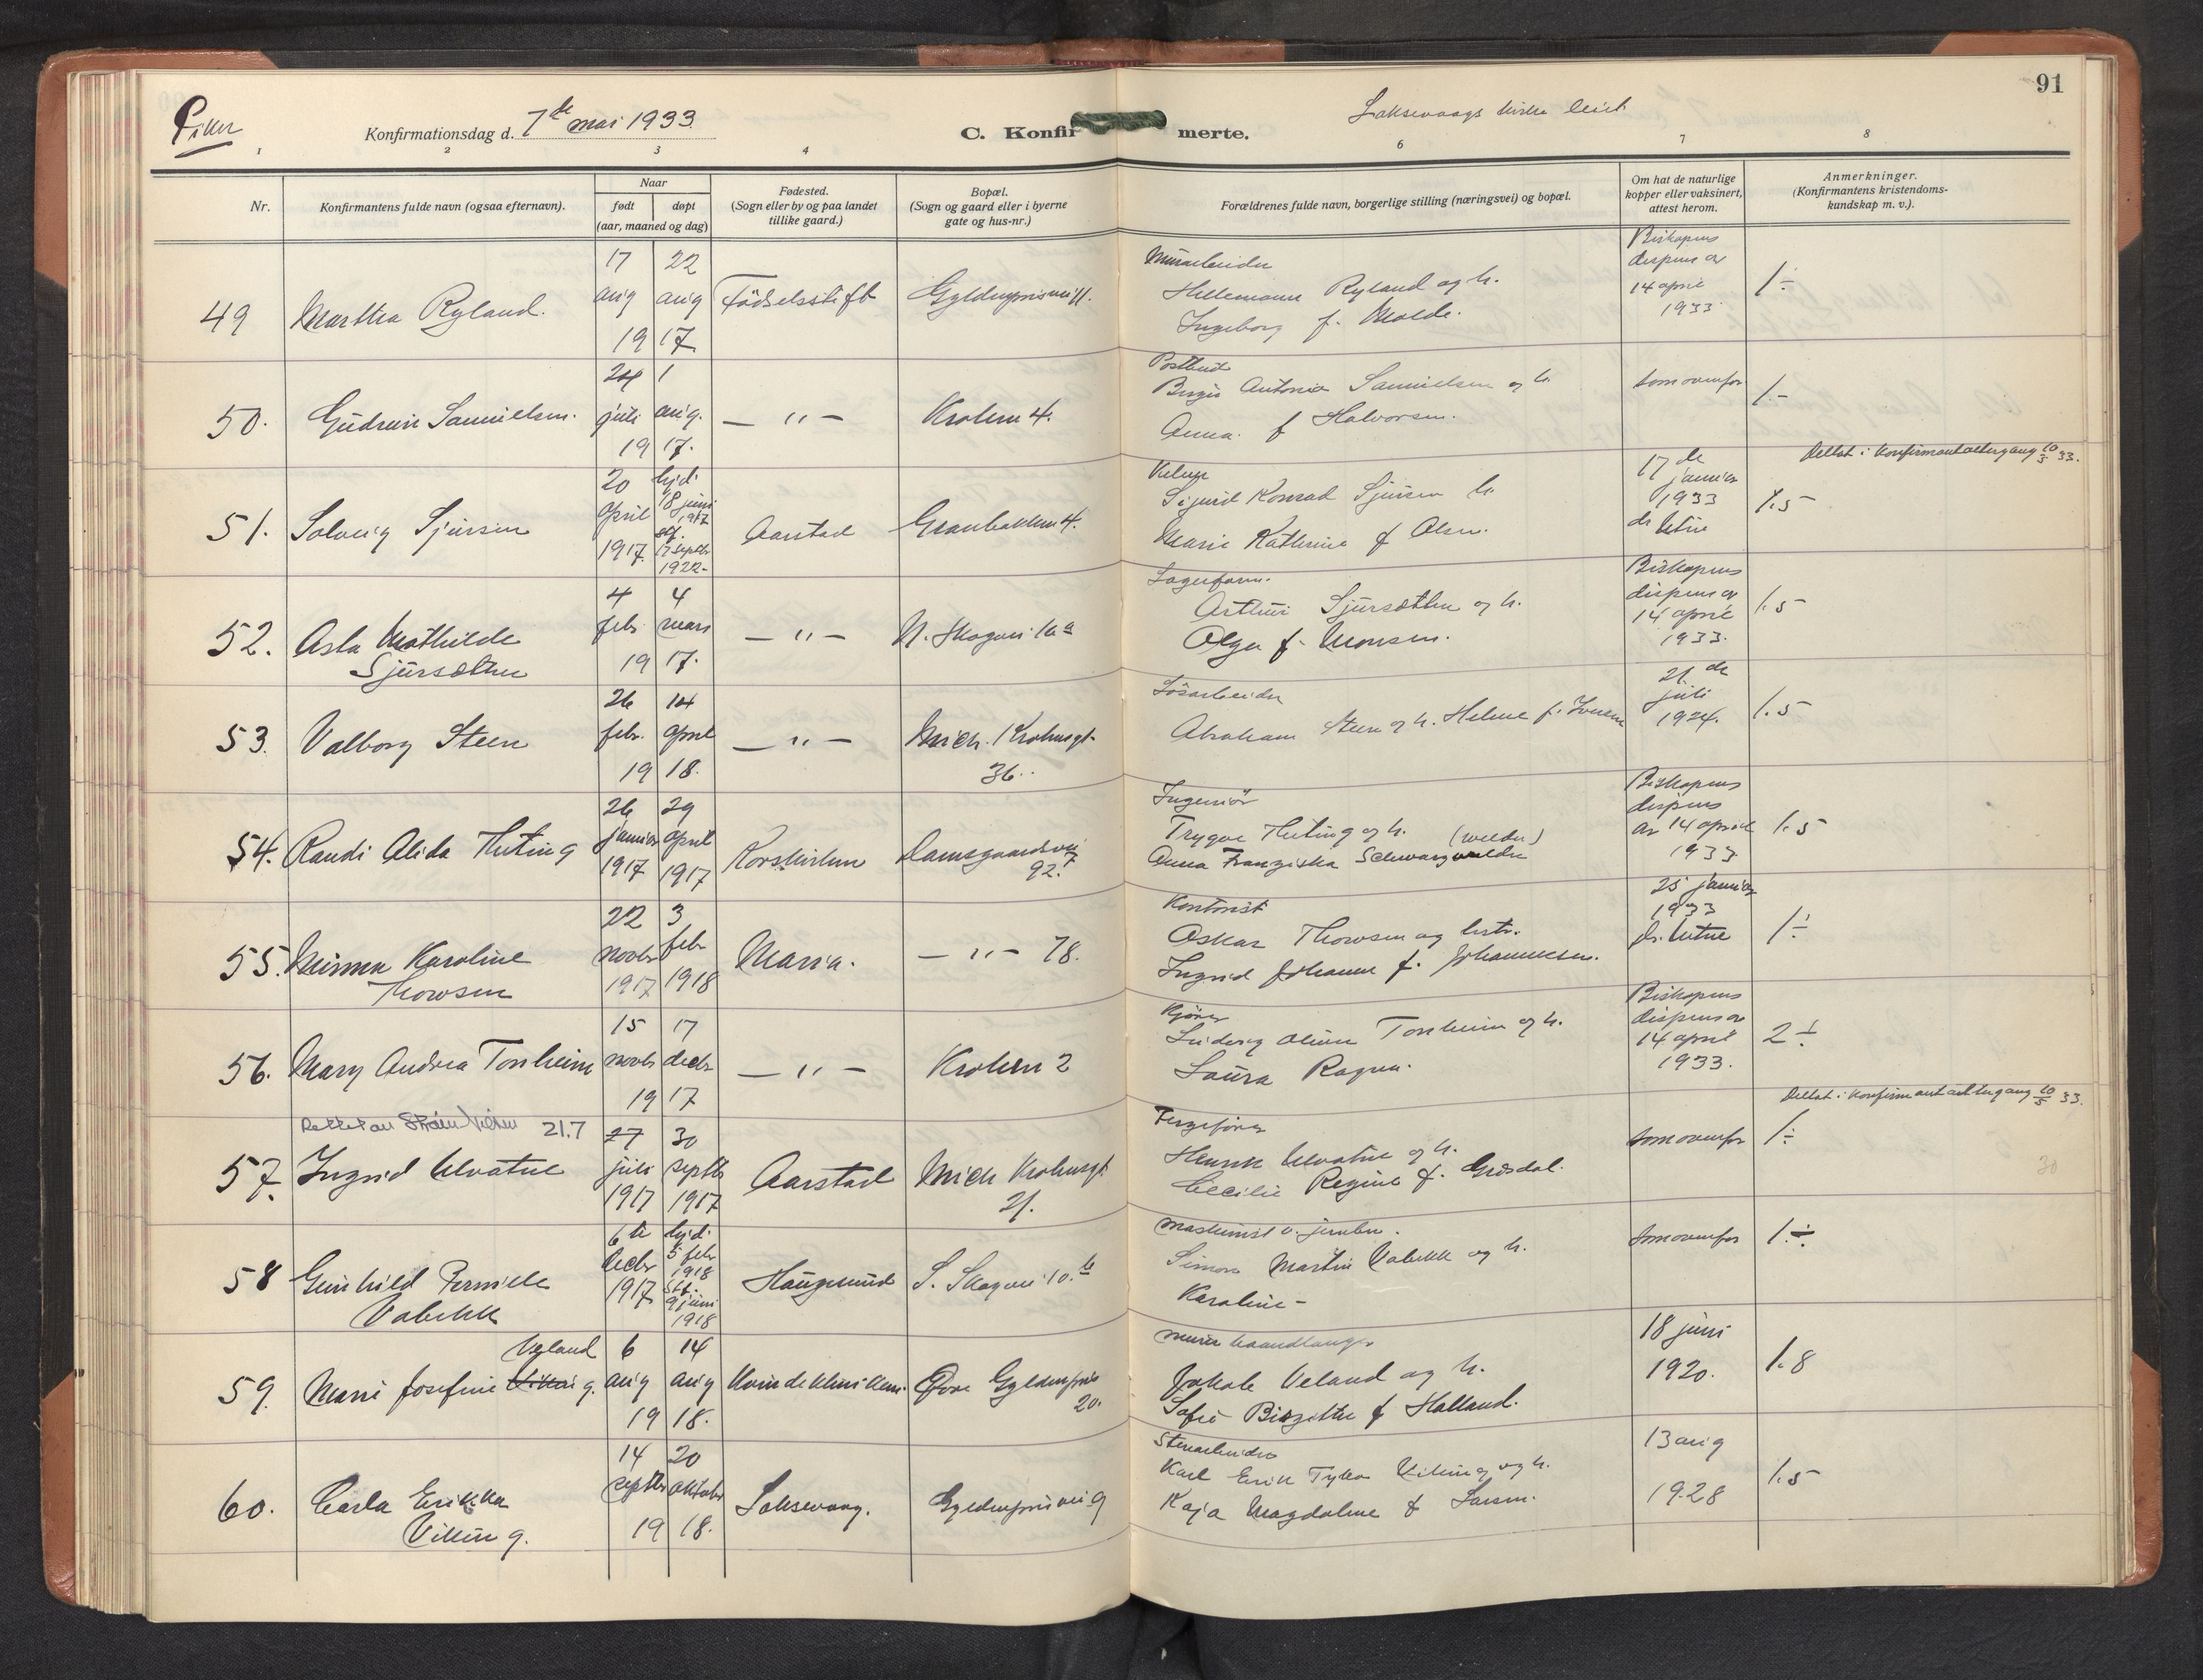 91
Piker
Konfirmationsdag d. 7de mai 1933.
C. Konfirmerte.
Laksevaags kirke
1 2 3 4 6 7 8
Nr.
Konfirmantens fulde navn (ogsaa efternavn).
Naar
født døpt
(aar, maaned og dag)
Fødested.
(Sogn eller by og paa landet
tillike gaard.)
Bopæl.
(Sogn og gaard eller i byerne
gate og hus-nr.)
Forældrenes fulde navn, borgerlige stilling (næringsvei) og bopæl.
Om hat de naturlige
kopper eller vaksinert,
attest herom.
Anmerkninger.
(Konfirmantens kristendoms-
kundskap m. v.).
49 Martha Ryland.
17 22
aug aug
19 17.
Fødselsstift
Murarbeider
Ryland og h.
Ingeborg f. Molde.
Biskopens
dispens av
14 april
1933.
1÷
50. Gudrun Samuelsen.
24 1
juli aug.
19 17.
— " —
Krohen 4.
Postbud
Birger Antonio Samuelsen og h.
Anna f Halvorsen.
som ovenfor
1.-
Deltat i Konfirmantaltergang 10/5 33.
51. Solveig Sjursen
20 april 1917.
hjd. 18 juni 1917
17 septbr 1922-
Aarstad
Granbakken 4.
Sigurd Konrad Sjursen h.
Marie Kathrine f Olsen.
17de
januar
1933
dr Utne
1.5
52. Asta Mathilde
Sjursæther
4 4
febr. mars
19 17.
— " —
N. Skogvei 16a
Lagerform.
Arthur Sjursæther og h.
Olga f. Monsen.
Biskopens
dispens av
14 april
1933.
1.5
53. Valborg Steen
26 14
febr. april
19 18.
— " —
Mich. Krohnsgt.
36.
Løsarbeider
Abraham Steen og h. Helene f. Iversen
21. de
juli
1924.
1.5
54. Randi Alida Huting
26 29
januar april
1917 1917
Korskirken
Damsgaardsvei
92.
Ingeniør
Trygve Huting og h.
Anna Franziska Schwarzwelder
(welder)
Biskopens
dispens
av 14 april
1933
1.5
55. Minna Karoline
Thowsen
22 3
novbr febr
1917 1918
Maria.
— " — 78.
Kontorist
Oskar Thowsen og hstr.
Ingrid Johanne f. Johannesen.
25 januar
1933
dr. Utne
1÷
56. Mary Andrea Tonheim
15 17
novbr decbr
19 17
— " —
Krohen 2
Kjører
Ludvig Oliver Tonheim og h.
Laura Ragna.
Biskopens
dispens av
14 april
1933.
2÷
Deltat i Konfirmantaltergang 10/5 33.
Rettet av 21.7
57. Ingrid Ulvatne
27 30
juli septbr
1917 1917
Aarstad
Mich Krohnsgt.
21.
Fergefører
Henrik Ulvatne og h.
Cecilie Regine f. Grøsdal.
som ovenfor
1÷
30
58 Gunhild Pernille
Vabekk
6te decbr 1917
hjd. 5 febr 1918
stf. 9 juni 1918
Haugesund
S. Skogvei 10.b
Maskinist v. jernbn.
Simon Martin Vabekk og h.
Karoline -
som ovenfor
1.÷
59. Marie Josefine Viking. Veland
6 14
aug aug
19 18.
Kvindeklinikken.
Øvre Gyldenpris
20.
Murer haandlanger
Jakob Veland og h.
Sofie Birgitte f Halland.
18 juni
1920.
1.8
60. Carla Erikka
Viking.
14 20
septbr oktober
19 18.
Laksevaag.
Gyldenprisvei 9
Stenarbeider
Karl Erik Tyko Viking og h.
Kaja Magdalene f Larsen.
13 aug
1928
1.5